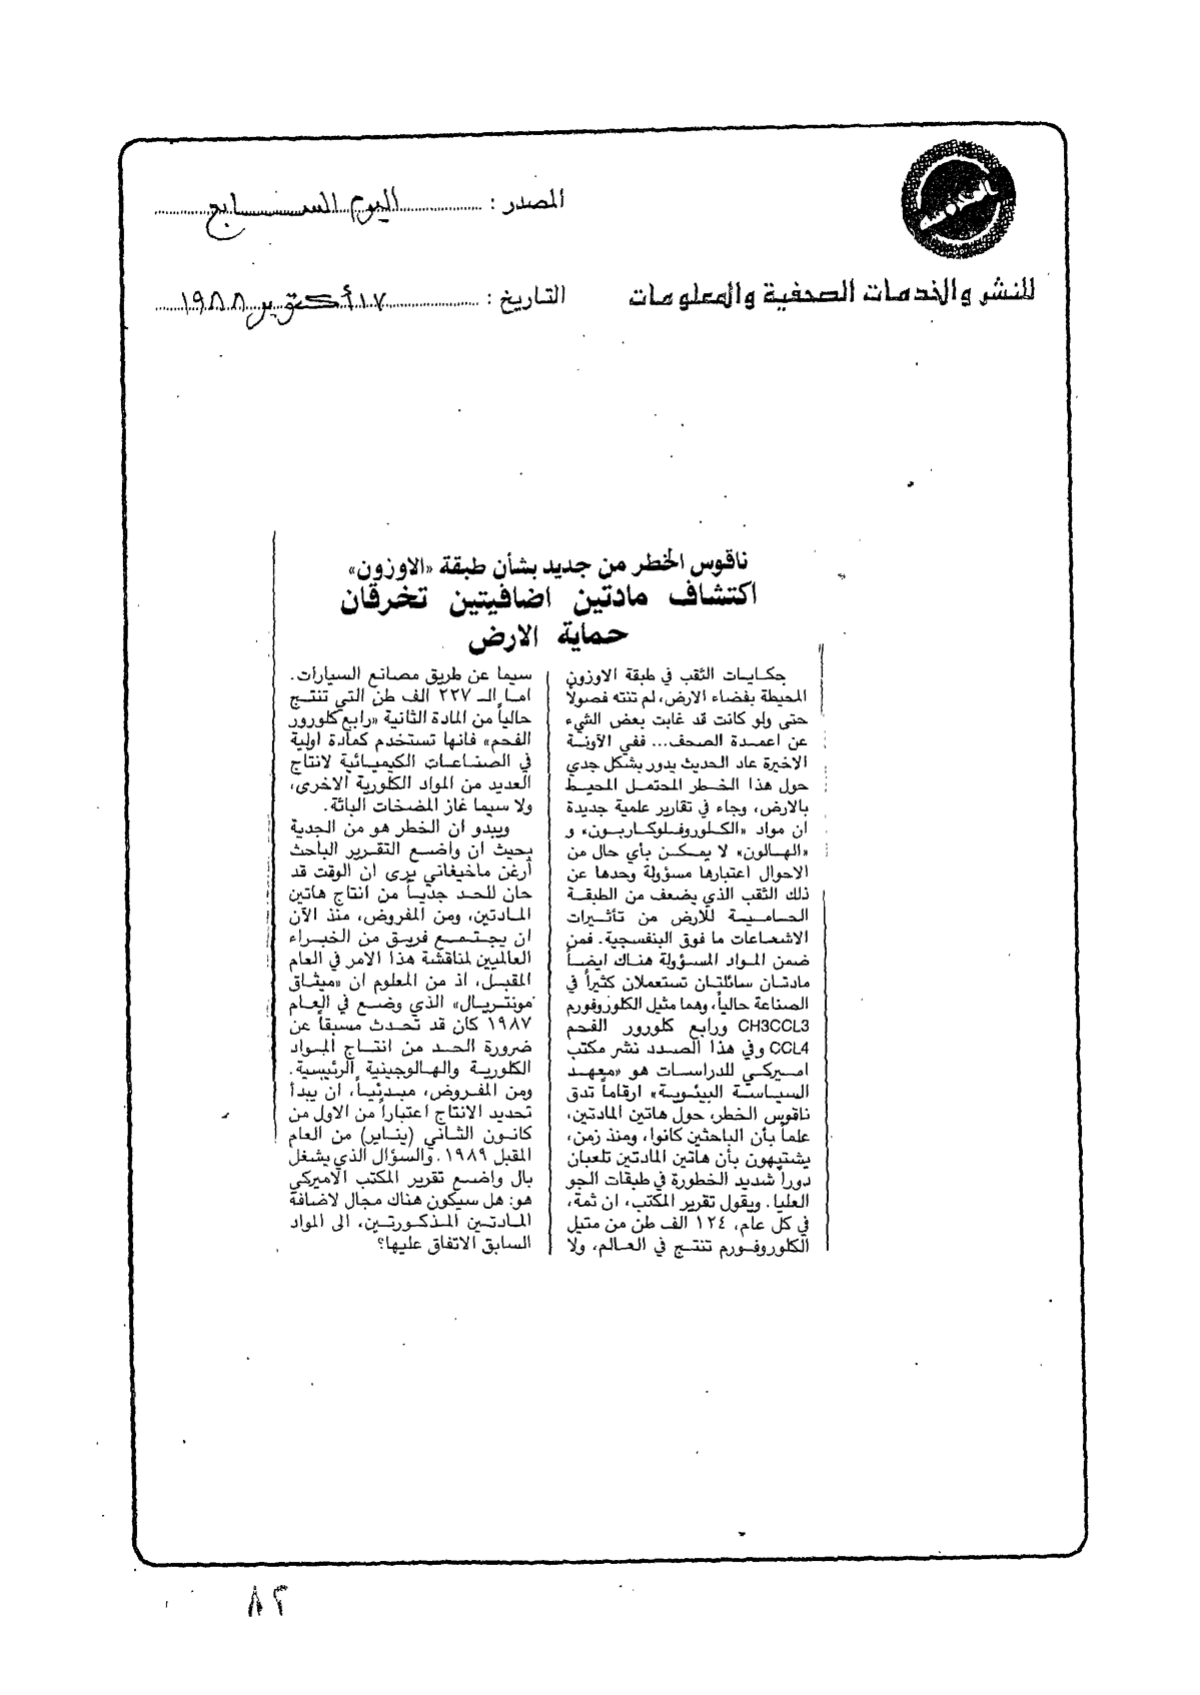 المصدر : اليوم السابع
للنشر والخدمات الصحفية والمعلومات
التاريخ : ١٧ أكتوبر ١٩٨٨
ناقوس الخطر من جديد بشأن طبقة «الاوزون»
اكتشاف مادتين اضافيتين تخرقان
حماية الارض
حكايات الثقب في طبقة الاوزون
المحيطة بفضاء الارض، لم تنته فصولاً
حتى ولو كانت قد غابت بعض الشيء
عن اعمدة الصحف... ففي الآونة
الاخيرة عاد الحديث يدور بشكل جدي
حول هذا الخطر المحتمل المحيط
بالارض، وجاء في تقارير علمية جديدة
ان مواد «الكلوروفلوكاربون» و
«الهالون» لا يمكن بأي حال من
الاحوال اعتبارها مسؤولة وحدها عن
ذلك الثقب الذي يضعف من الطبقة
الحامية للأرض من تأثيرات
الاشعاعات ما فوق البنفسجية. فمن
ضمن المواد المسؤولة هناك ايضاً
مادتان سائلتان تستعملان كثيراً في
الصناعة حالياً، وهما مثيل الكلوروفورم
CH3CCL3 ورابع كلورور الفحم
CCL4 وفي هذا الصدد نشر مكتب
اميركي للدراسات هو «معهد
السياسة البيئوية» ارقاماً تدق
ناقوس الخطر، حول هاتين المادتين،
علماً بأن الباحثين كانوا، ومنذ زمن،
يشتبهون بأن هاتين المادتين تلعبان
دوراً شديد الخطورة في طبقات الجو
العليا. ويقول تقرير المكتب، ان ثمة،
في كل عام، ١٢٤ الف طن من مثيل
الكلوروفورم تنتج في العالم، ولا
سيما عن طريق مصانع السيارات.
اما الـ ٢٢٧ الف طن التي تنتج
حالياً من المادة الثانية «رابع كلورور
الفحم» فانها تستخدم كمادة اولية
في الصناعات الكيميائية لانتاج
العديد من المواد الكلورية الاخرى،
ولا سيما غاز المضخات الباثة.
ويبدو ان الخطر هو من الجدية
بحيث ان واضع التقرير الباحث
أرغن ماخيغاني يرى ان الوقت قد
حان للحد جدياً من انتاج هاتين
المادتين، ومن المفروض، منذ الآن
ان يجتمع فريق من الخبراء
العالميين لمناقشة هذا الامر في العام
المقبل، اذ من المعلوم ان «ميثاق
مونتريال» الذي وضع في العام
١٩٨٧ كان قد تحدث مسبقاً عن
ضرورة الحد من انتاج المواد
الكلورية والهالوجينية الرئيسية.
ومن المفروض، مبدئياً، أن يبدأ
تحديد الانتاج اعتباراً من الاول من
كانون الثاني (يناير) من العام
المقبل ١٩٨٩. والسؤال الذي يشغل
بال واضع تقرير المكتب الاميركي
هو: هل سيكون هناك مجال لاضافة
المادتين المذكورتين، الى المواد
السابق الاتفاق عليها؟